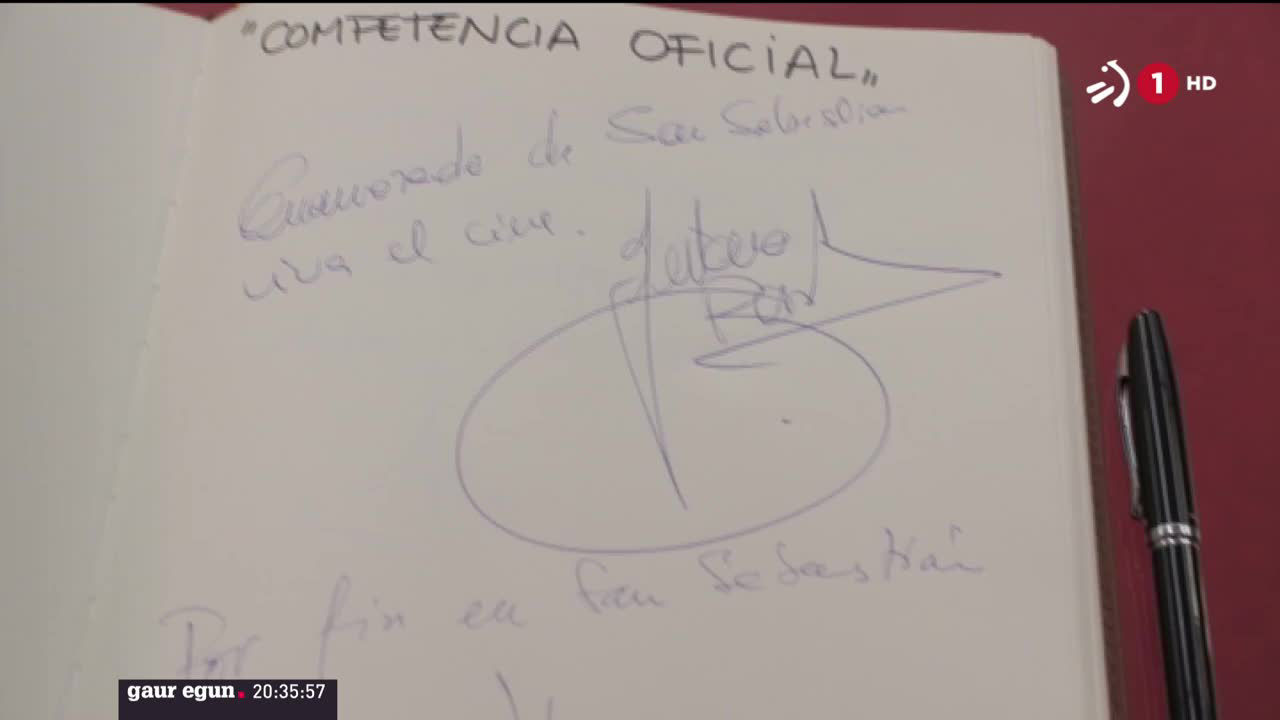 "COMPETENCIA OFICIAL"
1 HD
Enamorado de San Sebastian
viva el cine.
Por fin en San Sebastián
gaur egun. 20:35:57